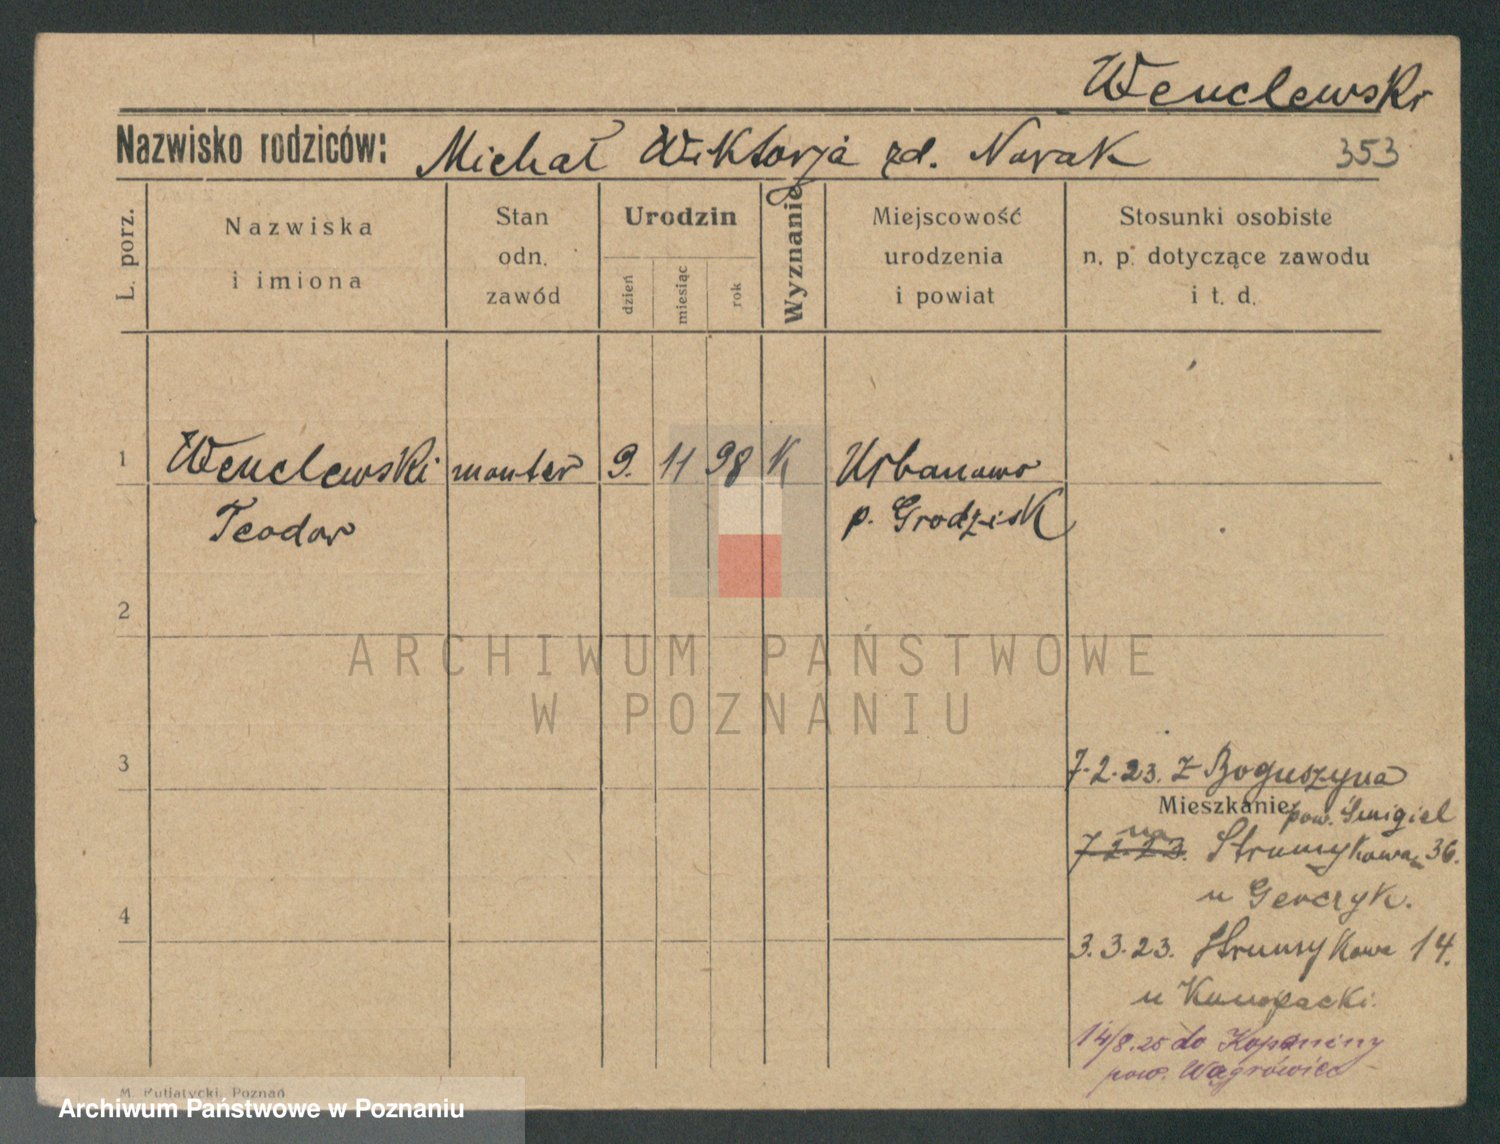 Wenclewski
Nazwisko rodziców: Michał Wiktorja zd. Novak 353
L. porz.
Nazwiska
i imiona
Stan
odn.
zawód
Urodzin
dzień
miesiąc
rok
Wyznanie
Miejscowość
urodzenia
i powiat
Stosunki osobiste
n. p. dotyczące zawodu
i t. d.
1 Wenclewski monter 9. 11 98 K Urbanowo
Teodor p. Grodzisk
2
ARCHIWUM PAŃSTWOWE
W POZNANIU
3
7.2.23. z Boguszyna
Mieszkanie pow. Śmigiel
na
7.2.23. Strumykowa 36.
u Gerczyk.
4
3.3.23. Strumykowa 14.
u Konopacki.
14/8.25 do Kopaniny
pow. Wągrówiec
M. Putiatycki, Poznań
Archiwum Państwowe w Poznaniu